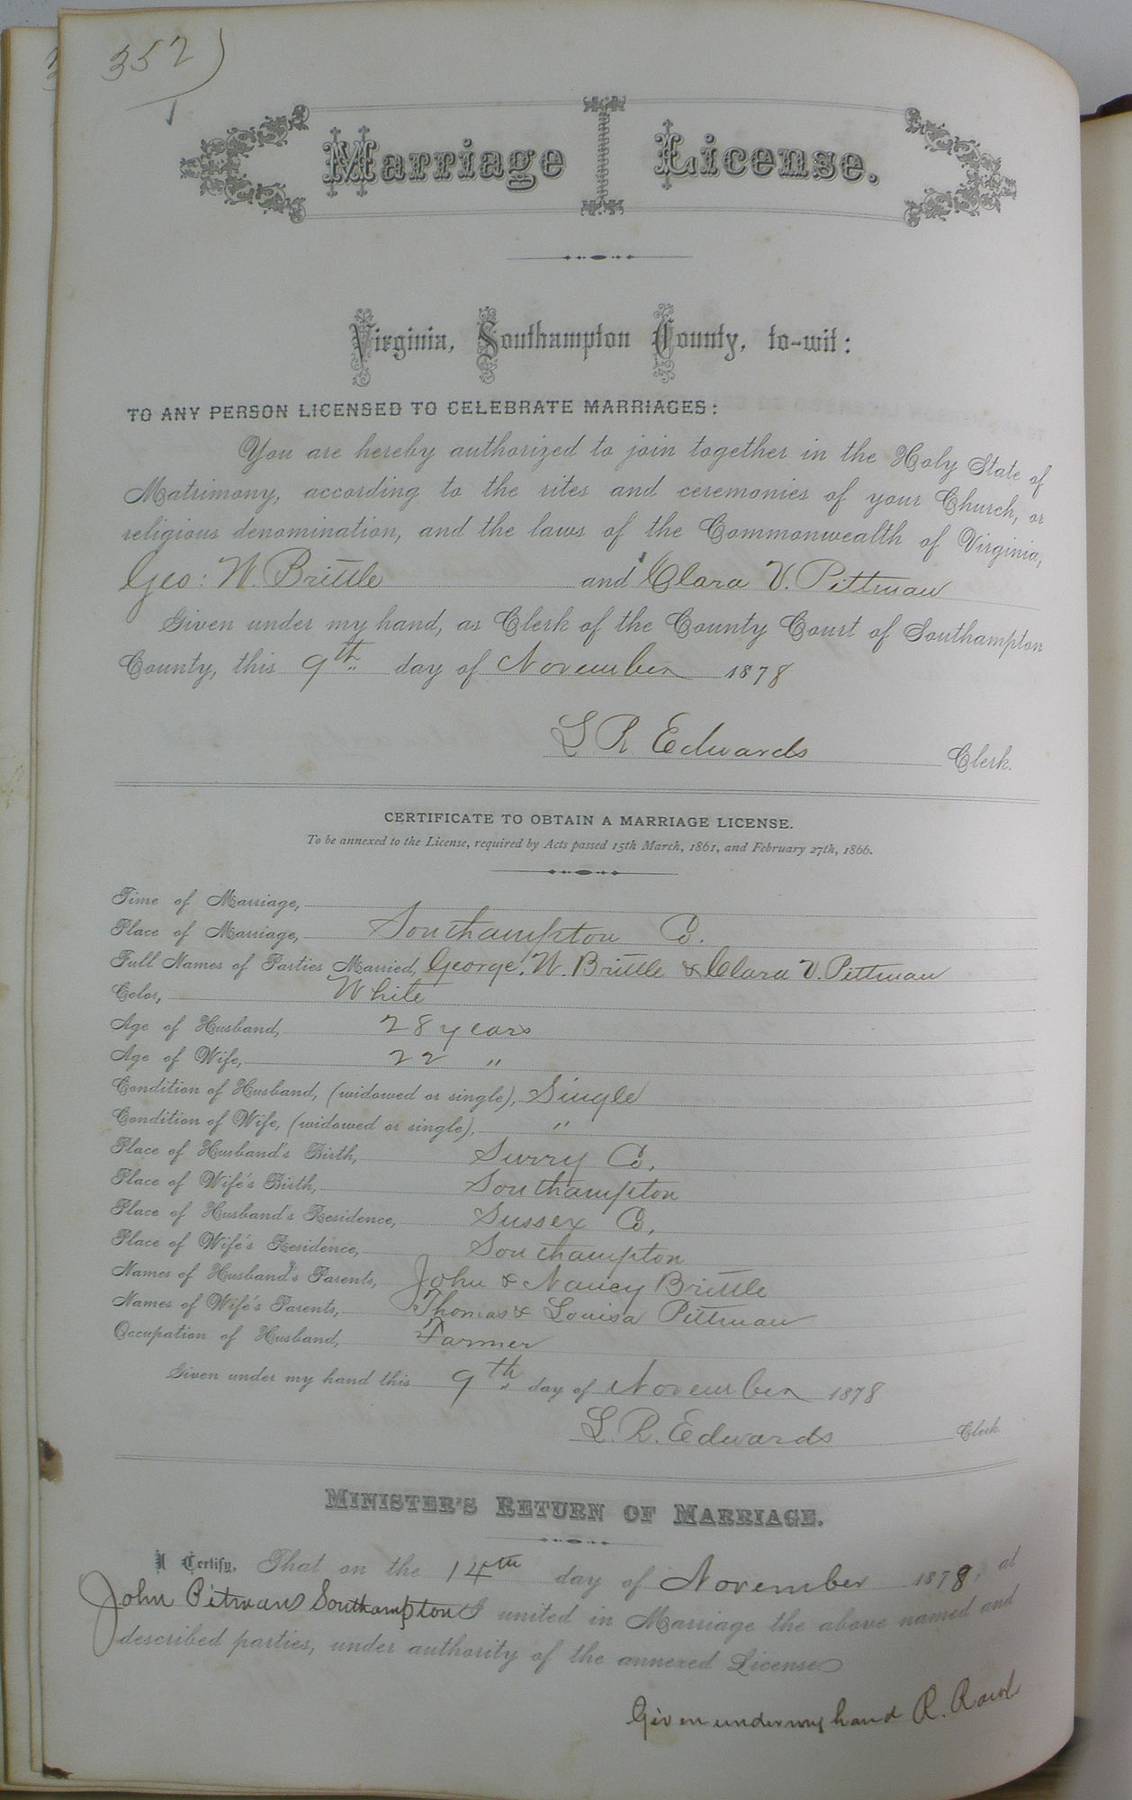 352)
Marriage License.
Virginia, Southampton County, to-wit:
TO ANY PERSON LICENSED TO CELEBRATE MARRIAGES:
You are hereby authorized to join together in the Holy State of
Matrimony, according to the rites and ceremonies of your Church, or
religious denomination, and the laws of the Commonwealth of Virginia,
Geo: W. Brittle and Clara V. Pittman
Given under my hand, as Clerk of the County Court of Southampton
County, this 9th day of November 1878
L R Edwards Clerk.
CERTIFICATE TO OBTAIN A MARRIAGE LICENSE.
To be annexed to the License, required by Acts passed 15th March, 1861, and February 27th, 1866.
Time of Marriage,
Place of Marriage, Southampton Co.
Full Names of Parties Married, George W. Brittle & Clara V. Pittman
Color, White
Age of Husband, 28 years
Age of Wife, 22 "
Condition of Husband, (widowed or single), Single
Condition of Wife, (widowed or single), "
Place of Husband's Birth, Surry Co.
Place of Wife's Birth, Southampton
Place of Husband's Residence, Sussex Co.
Place of Wife's Residence, Southampton
Names of Husband's Parents, John & Nancy Brittle
Names of Wife's Parents, Thomas & Louisa Pittman
Occupation of Husband, Farmer
Given under my hand this 9th day of November 1878
L. R. Edwards Clerk
MINISTER'S RETURN OF MARRIAGE.
I Certify, That on the 14th day of November 1878, at
John Pitmans Southampton I united in Marriage the above named and
described parties, under authority of the annexed License
Given under my hand R.